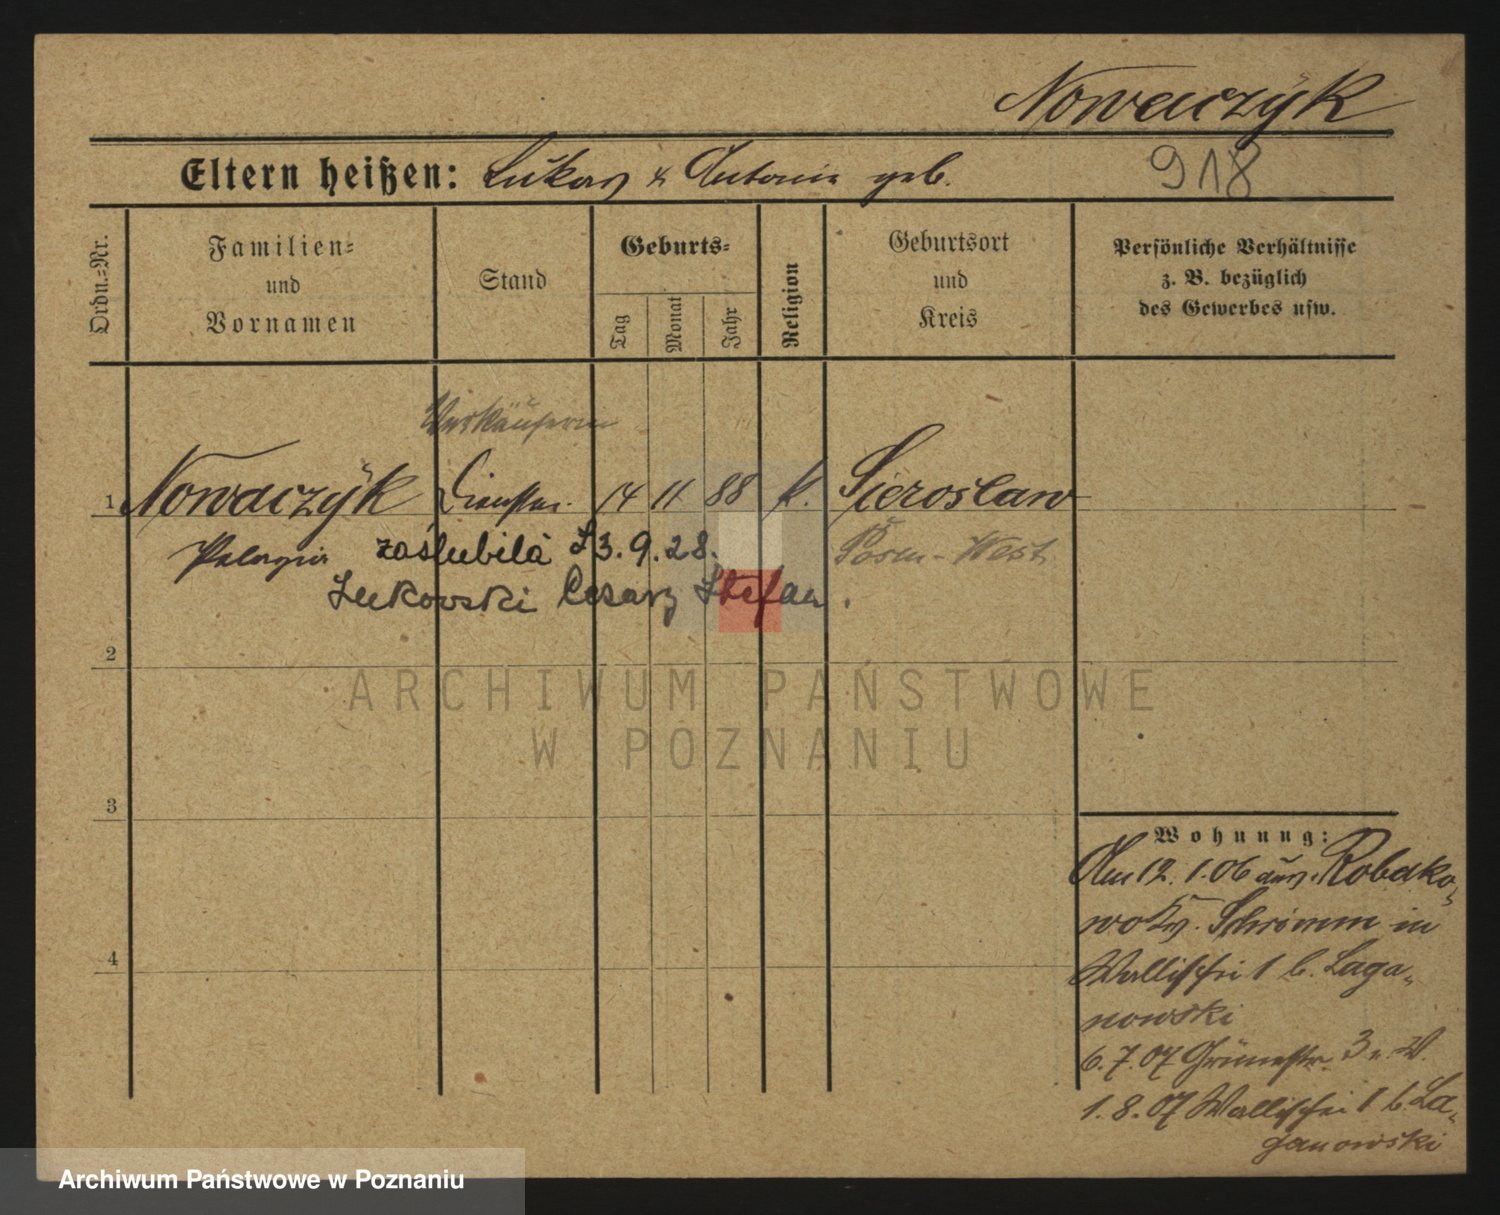 Nowaczyk
Eltern heißen: Lukas & Antonie geb.
918
Ordn.=Nr.
Familien=
und
Vornamen
Stand
Geburts=
Tag
Monat
Jahr
Religion
Geburtsort
und
Kreis
Persönliche Verhältnisse
z. B. bezüglich
des Gewerbes usw.
Verkäuferin
1 Nowaczyk Dienstm. 14 11 88 k. Sieroslaw
Pelagia zaślubiła 3.9.28. Posen-West
Lukowski Cezary Stefan.
2
ARCHIWUM PAŃSTWOWE
W POZNANIU
3
4
Wohnung:
Am 12.1.06 aus Robako-
wo Kr. Schrimm in
Wallischei 1 b. Laga-
nowski
6.7.07 Grünestr. 3 v. W.
1.8.07 Wallischei 1 b. La-
ganowski
Archiwum Państwowe w Poznaniu